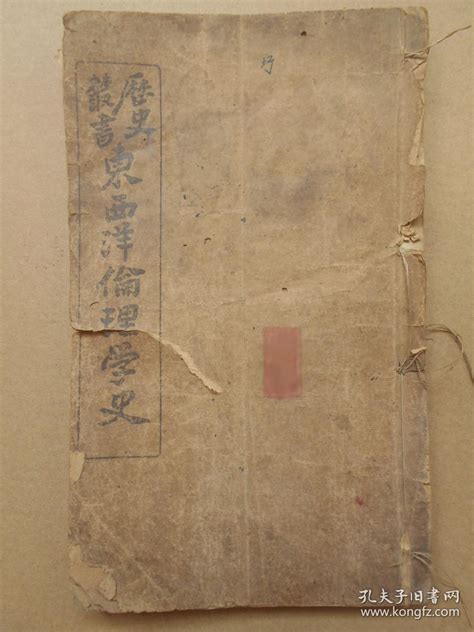 歷史
叢書
東西洋倫理学史
孔夫子旧书网
www.kongfz.com